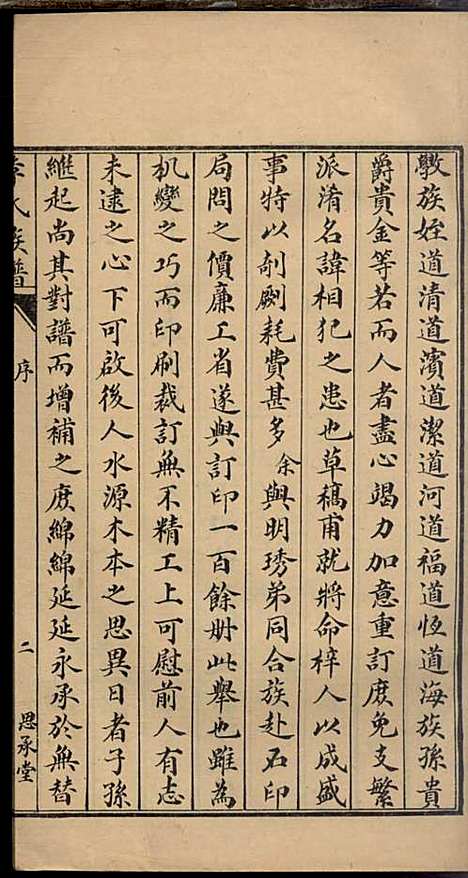 斆族姪道清道濱道潔道河道福道恆道海族孫貴
爵貴金等若而人者盡心竭力加意重訂庶免支繁
派淆名諱相犯之患也草稿甫就將命梓人以成盛
事特以剞劂耗費甚多余與明琇弟同合族赴石印
局問之價廉工省遂與訂印一百餘册此舉也雖為
机變之巧而印刷裁訂無不精工上可慰前人有志
未逮之心下可啟後人水源木本之思異日者子孫
繼起尚其對譜而增補之庶綿綿延延永承於無替
氏族譜 序 二 思承堂